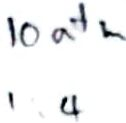 10 atm
1 : 4